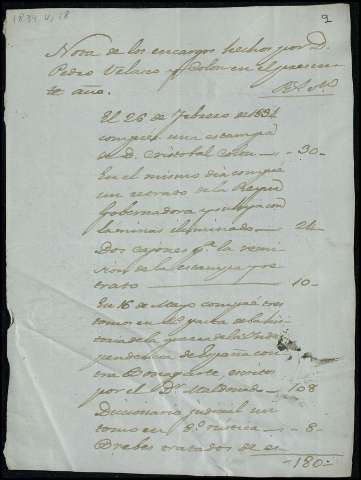 1834, V, 18
2
Nota de los encargos hechos por D.
Pedro Velasco y Colon en el presen-
te año.
Rs. Mrs.
El 26 de Febrero de 1834
compré una estampa
de D. Cristobal Colon — 30 —
En el mismo dia compré
un retrato de la Reyna
Gobernadora y su hija con
laminas iluminado — 24
Dos cajones pª. la remi-
sion de la estampa y re-
trato — 10 —
En 16 de Mayo compré tres
tomos en 4º pasta de la his-
toria de la guerra de la Inde-
pendencia de España con-
tra Bonaparte, escritos
por el Dr. Maldonado — 108
Diccionario judicial un
tomo en 8º rustica — 8 —
Brebes tratados de es-
— 180 —